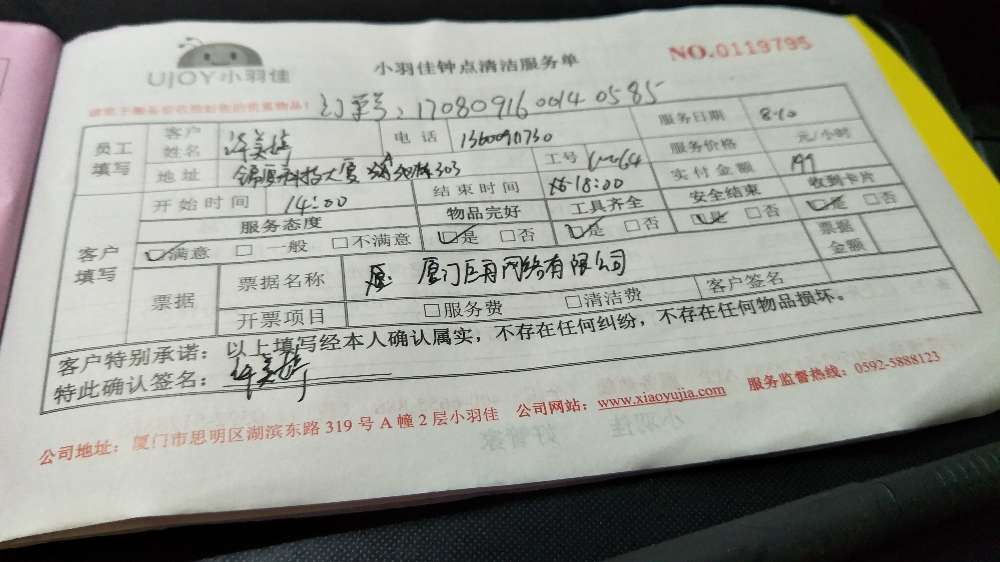 UJOY小羽佳
小羽佳钟点清洁服务单
NO.0119795
订单号：170809160014 0585
员工填写
客户姓名 许美婷 电话 服务日期 8.10
地址 303 工号 服务价格 元/小时
开始时间 14:00 结束时间 18:00 实付金额
客户填写
服务态度 物品完好 工具齐全 安全结束 收到卡片
☑满意 □一般 □不满意 ☑是 □否 ☑是 □否 ☑是 □否 ☑是 □否
票据 票据名称 厦门巨再网络有限公司 票据金额
开票项目 □服务费 □清洁费 客户签名
客户特别承诺：以上填写经本人确认属实，不存在任何纠纷，不存在任何物品损坏。
特此确认签名：许美婷
公司地址：厦门市思明区湖滨东路319号A幢2层小羽佳 公司网站：www.xiaoyujia.com 服务监督热线：0592-5888123